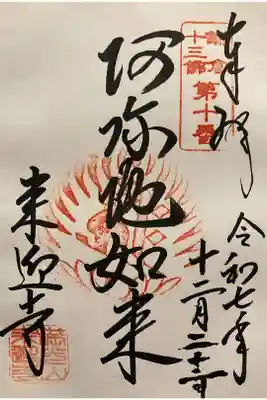 奉拝
鎌倉
十三佛
第十番
阿弥陀如来
令和七年
十二月二十
来迎寺